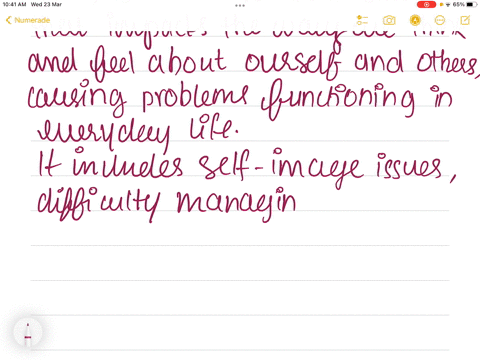 10:41 AM Wed 23 Mar
65%
Numerade
that impacts the way we think
and feel about ourself and others,
causing problems functioning in
everyday life.
It includes self-image issues,
difficulty managin